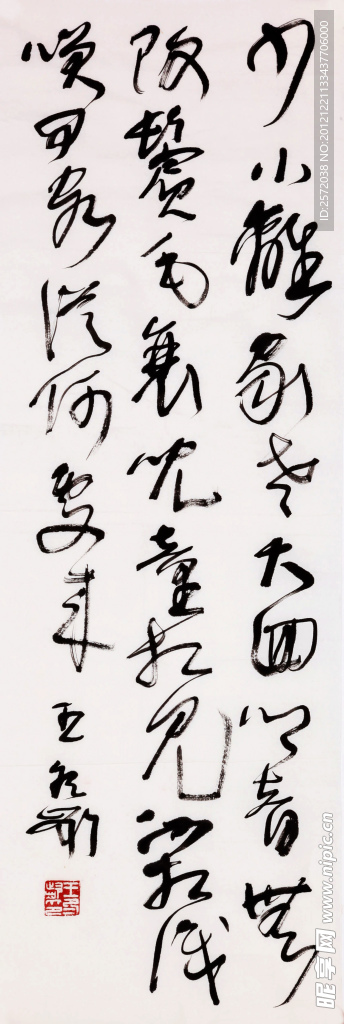 少小離家老大回鄉音無
改鬢毛衰兒童相見不相識
笑問客從何處來
王
ID:2572038 NO:20121221133437706000
昵享网 www.nipic.cn